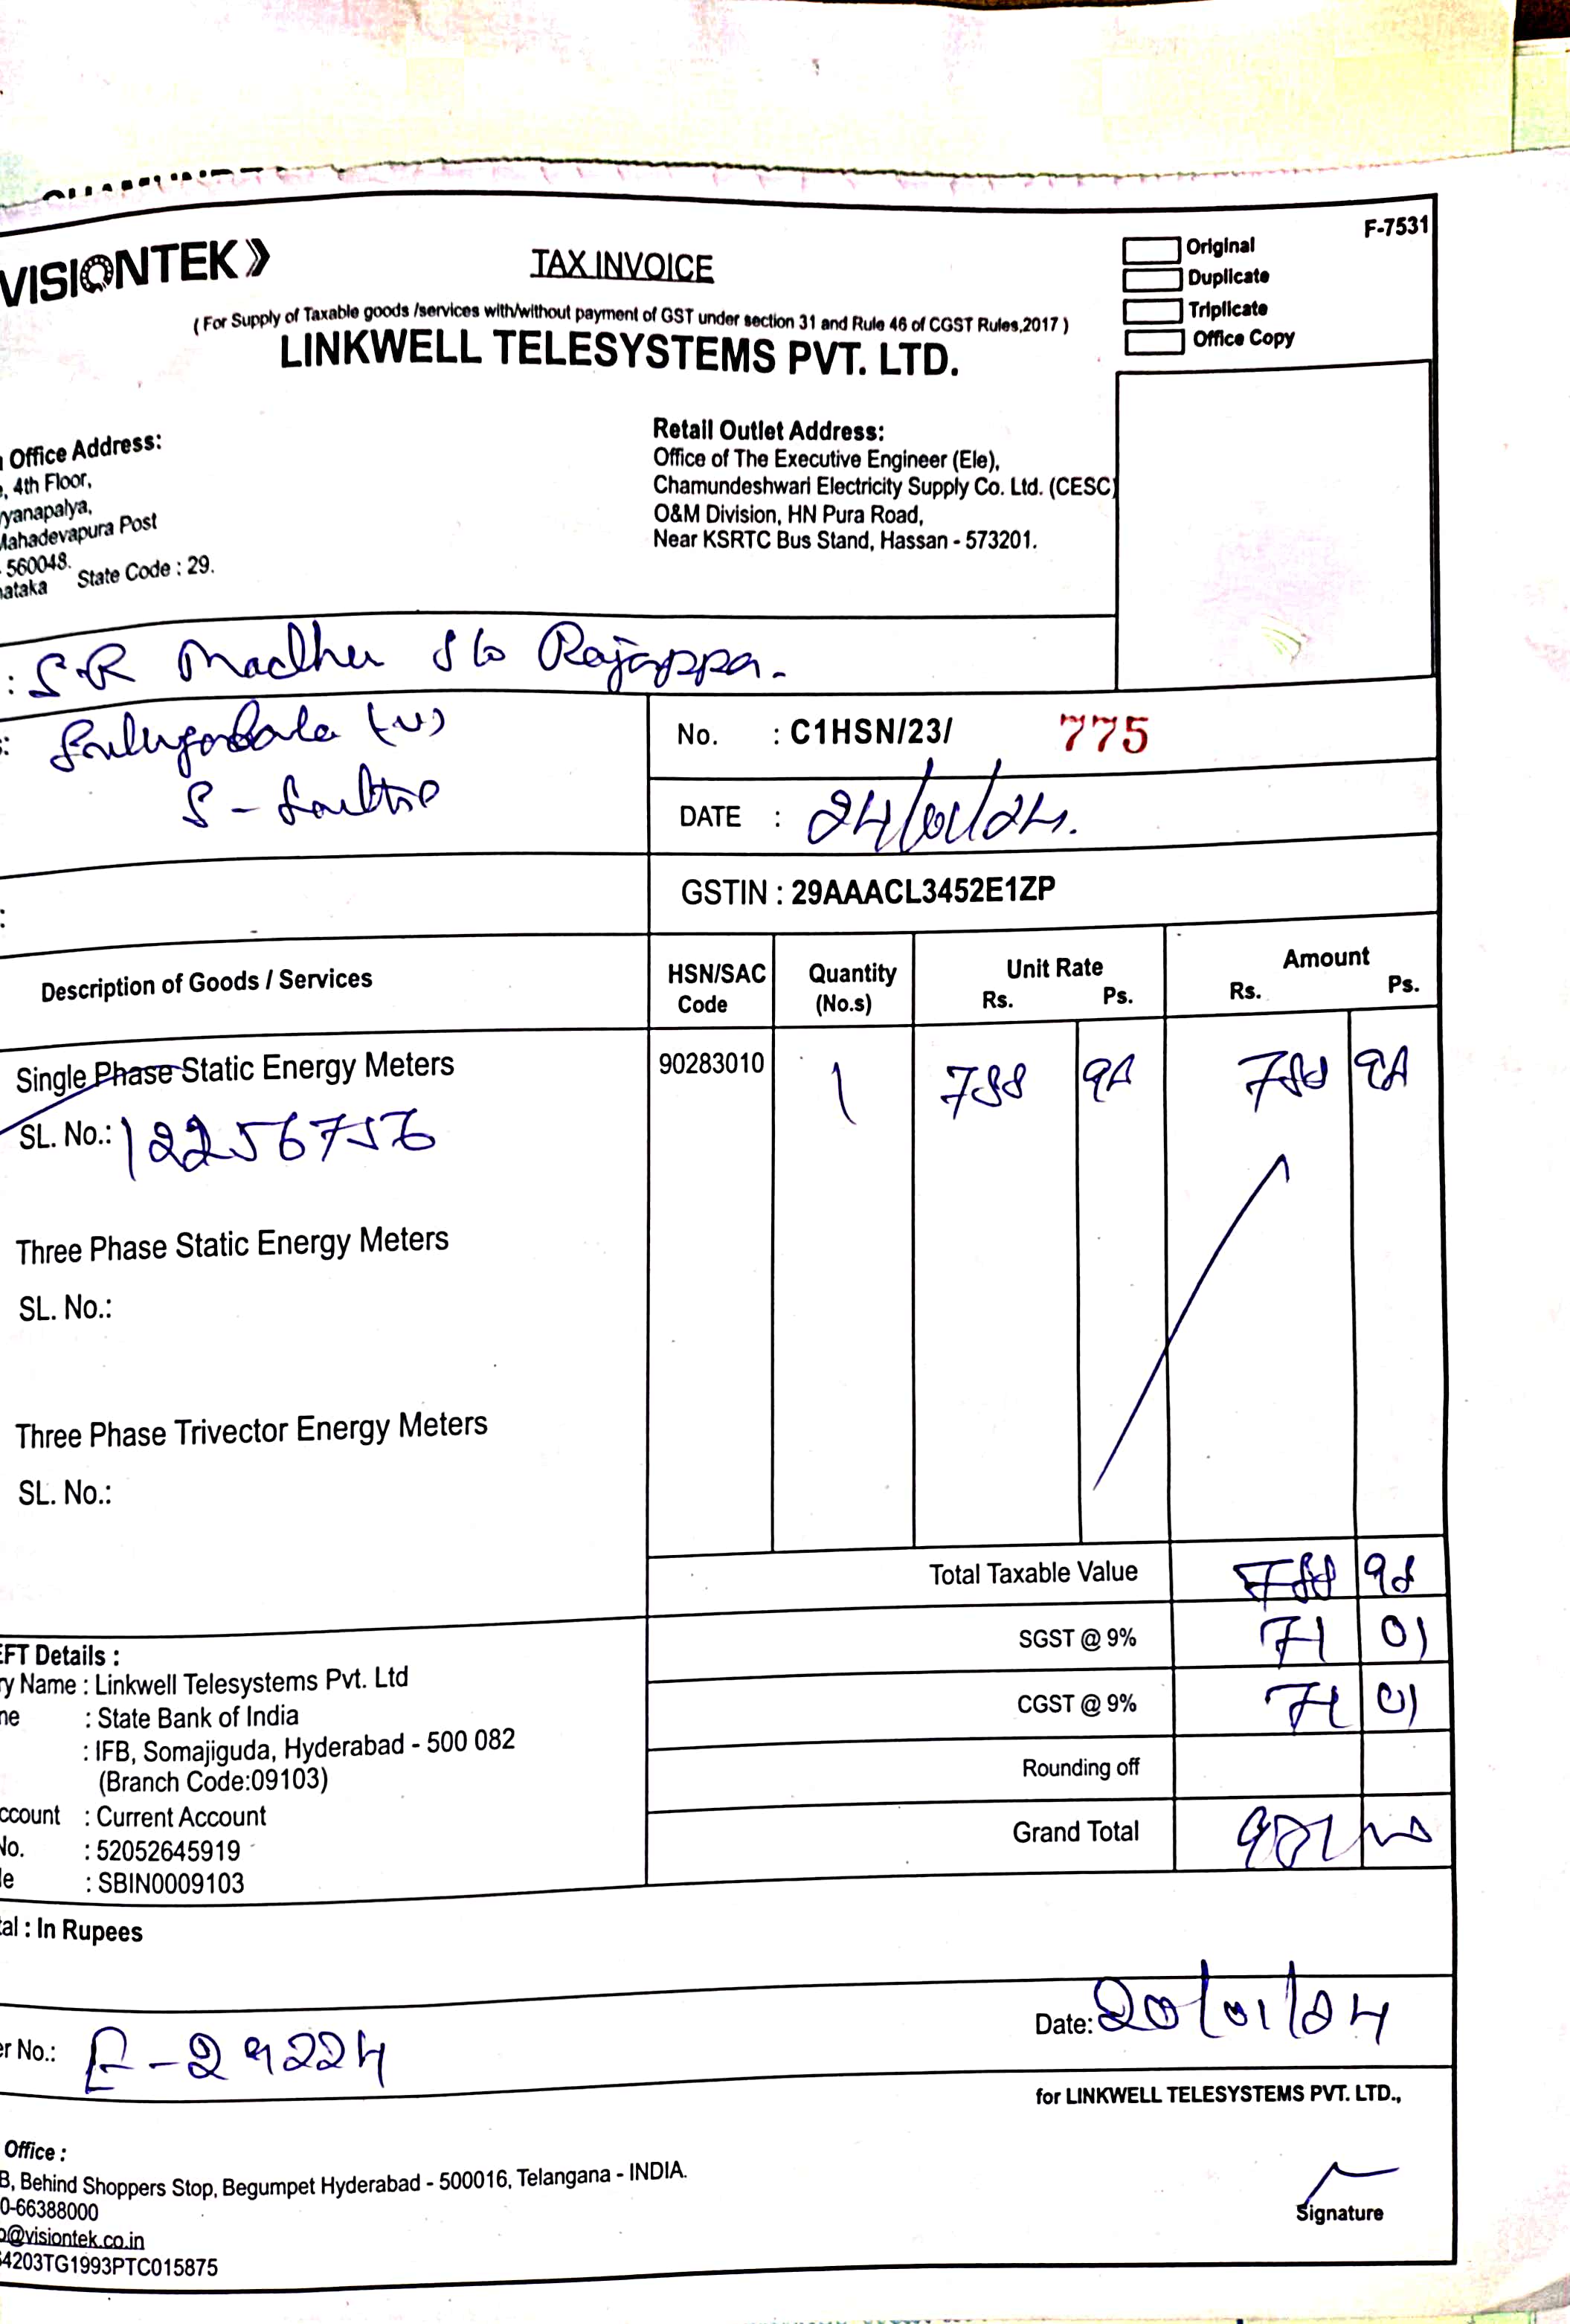 F-7531
VISIONTEK
TAX INVOICE
Original
Duplicate
Triplicate
Office Copy
( For Supply of Taxable goods /services with/without payment of GST under section 31 and Rule 46 of CGST Rules,2017 )
LINKWELL TELESYSTEMS PVT. LTD.
Office Address:
, 4th Floor,
yanapalya,
Mahadevapura Post
560048.
nataka State Code : 29.
Retail Outlet Address:
Office of The Executive Engineer (Ele),
Chamundeshwari Electricity Supply Co. Ltd. (CESC)
O&M Division, HN Pura Road,
Near KSRTC Bus Stand, Hassan - 573201.
: S.R Madhu S/o Rajappa.
No. : C1HSN/23/ 775
DATE : 24/01/24.
GSTIN : 29AAACL3452E1ZP
Description of Goods / Services
HSN/SAC Code
Quantity (No.s)
Unit Rate Rs. Ps.
Amount Rs. Ps.
Single Phase Static Energy Meters 90283010 1 788 98 788 98
SL. No.: 12256756
Three Phase Static Energy Meters
SL. No.:
Three Phase Trivector Energy Meters
SL. No.:
Total Taxable Value 788 98
SGST @ 9% 71 01
CGST @ 9% 71 01
Rounding off
Grand Total 931
EFT Details :
ry Name : Linkwell Telesystems Pvt. Ltd
ne : State Bank of India
: IFB, Somajiguda, Hyderabad - 500 082
(Branch Code:09103)
ccount : Current Account
No. : 52052645919
de : SBIN0009103
tal : In Rupees
er No.: E-29224
Date: 20/01/24
for LINKWELL TELESYSTEMS PVT. LTD.,
Office :
B, Behind Shoppers Stop, Begumpet Hyderabad - 500016, Telangana - INDIA.
0-66388000
o@visiontek.co.in
64203TG1993PTC015875
Signature